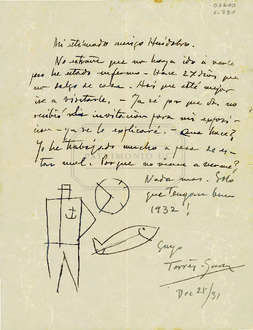 02610
Mi estimado amigo Huidobro.
No extrañe que no haya ido a verle
pero he estado enfermo - Hace 27 días que
no salgo de casa. Así que esté mejor
iré a visitarle. - Ya sé por que no
recibió la invitación para mi exposi-
ción - ya se lo explicaré. - Que hace?
Yo he trabajado mucho a pesar de es-
tar mal. Por que no viene a verme?
Nada mas. Solo
que tengan buen
1932!
Suyo
Torres-García
Dec 28/31